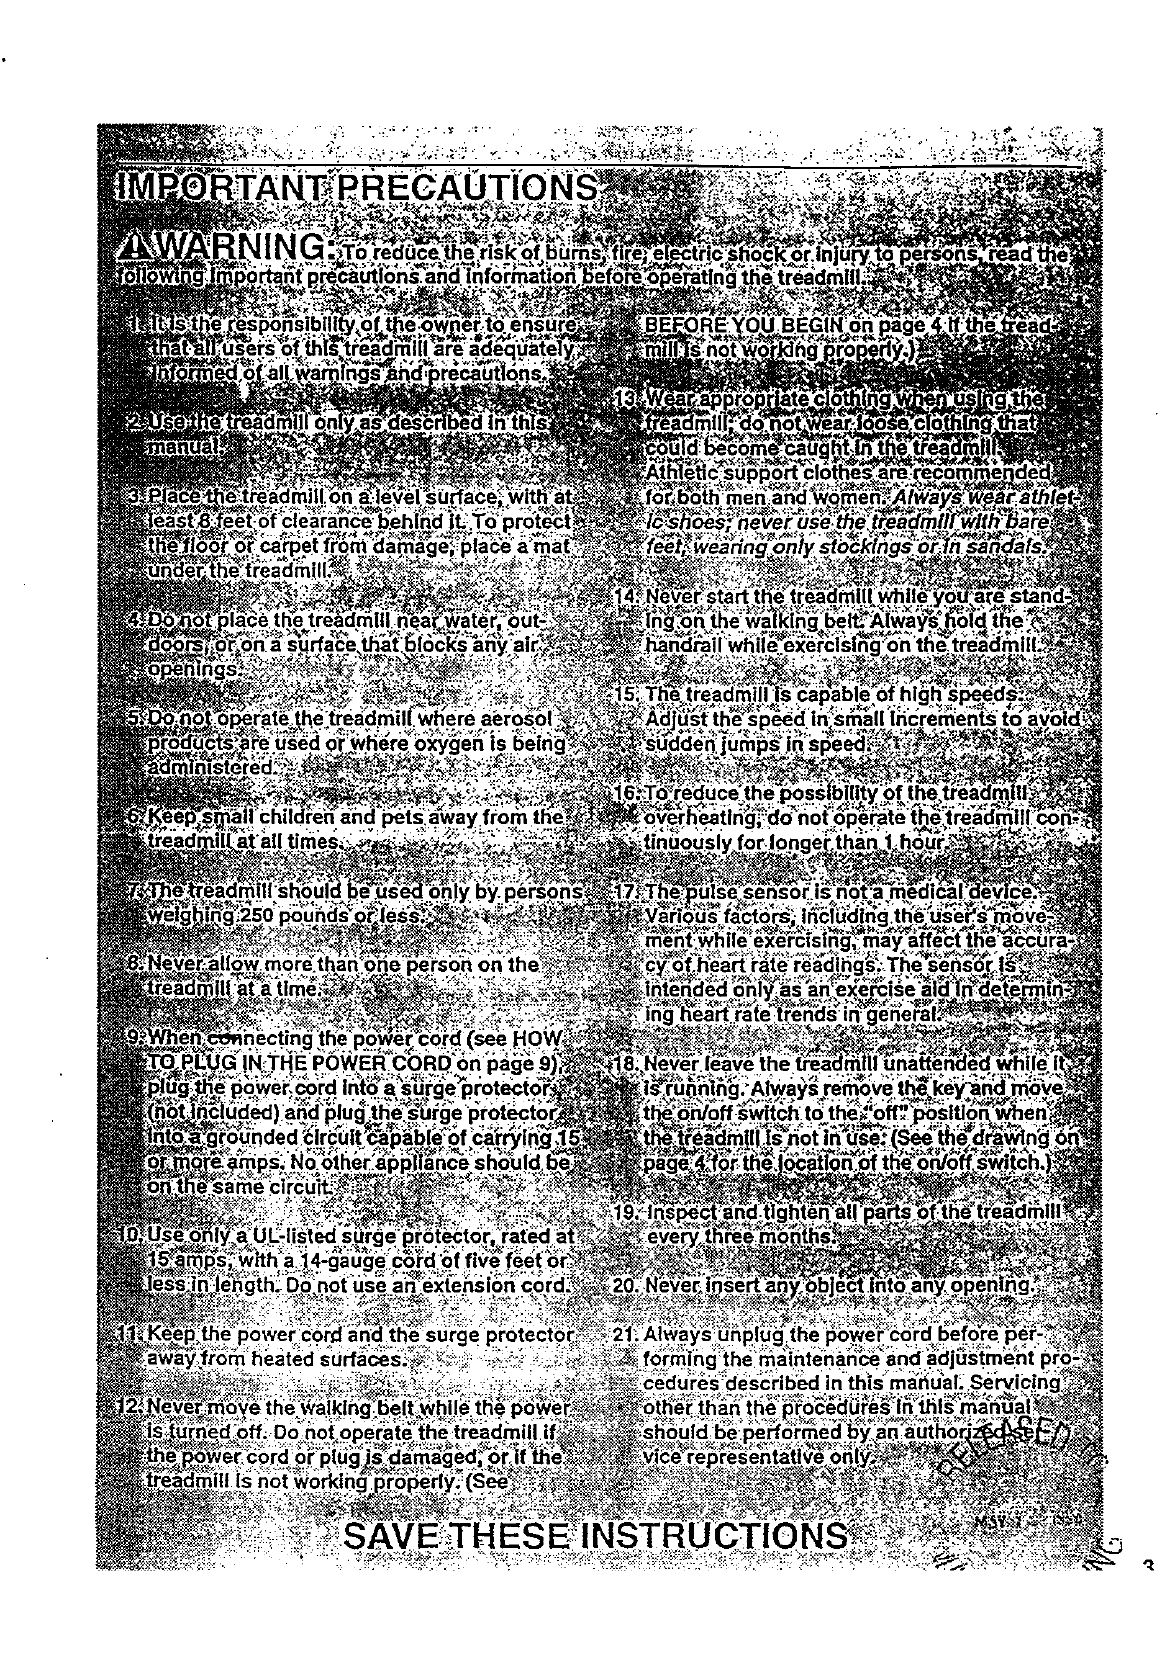 IMPORTANT PRECAUTIONS
WARNING: To reduce the risk of burns, fire, electric shock or injury to persons, read the
following important precautions and information before operating the treadmill.
1. It is the responsibility of the owner to ensure
that all users of this treadmill are adequately
informed of all warnings and precautions.
2. Use the treadmill only as described in this
manual.
3. Place the treadmill on a level surface, with at
least 8 feet of clearance behind it. To protect
the floor or carpet from damage, place a mat
under the treadmill.
4. Do not place the treadmill near water, out-
doors, or on a surface that blocks any air
openings.
5. Do not operate the treadmill where aerosol
products are used or where oxygen is being
administered.
6. Keep small children and pets away from the
treadmill at all times.
7. The treadmill should be used only by persons
weighing 250 pounds or less.
8. Never allow more than one person on the
treadmill at a time.
9. When connecting the power cord (see HOW
TO PLUG IN THE POWER CORD on page 9),
plug the power cord into a surge protector
(not included) and plug the surge protector
into a grounded circuit capable of carrying 15
or more amps. No other appliance should be
on the same circuit.
10. Use only a UL-listed surge protector, rated at
15 amps, with a 14-gauge cord of five feet or
less in length. Do not use an extension cord.
11. Keep the power cord and the surge protector
away from heated surfaces.
12. Never move the walking belt while the power
is turned off. Do not operate the treadmill if
the power cord or plug is damaged, or if the
treadmill is not working properly. (See
BEFORE YOU BEGIN on page 4 if the tread-
mill is not working properly.)
13. Wear appropriate clothing when using the
treadmill; do not wear loose clothing that
could become caught in the treadmill.
Athletic support clothes are recommended
for both men and women. Always wear athlet-
ic shoes; never use the treadmill with bare
feet, wearing only stockings or in sandals.
14. Never start the treadmill while you are stand-
ing on the walking belt. Always hold the
handrail while exercising on the treadmill.
15. The treadmill is capable of high speeds.
Adjust the speed in small increments to avoid
sudden jumps in speed.
16. To reduce the possibility of the treadmill
overheating, do not operate the treadmill con-
tinuously for longer than 1 hour.
17. The pulse sensor is not a medical device.
Various factors, including the user's move-
ment while exercising, may affect the accura-
cy of heart rate readings. The sensor is
intended only as an exercise aid in determin-
ing heart rate trends in general.
18. Never leave the treadmill unattended while it
is running. Always remove the key and move
the on/off switch to the "off" position when
the treadmill is not in use. (See the drawing on
page 4 for the location of the on/off switch.)
19. Inspect and tighten all parts of the treadmill
every three months.
20. Never insert any object into any opening.
21. Always unplug the power cord before per-
forming the maintenance and adjustment pro-
cedures described in this manual. Servicing
other than the procedures in this manual
should be performed by an authorized ser-
vice representative only.
RELEASED
SAVE THESE INSTRUCTIONS
3